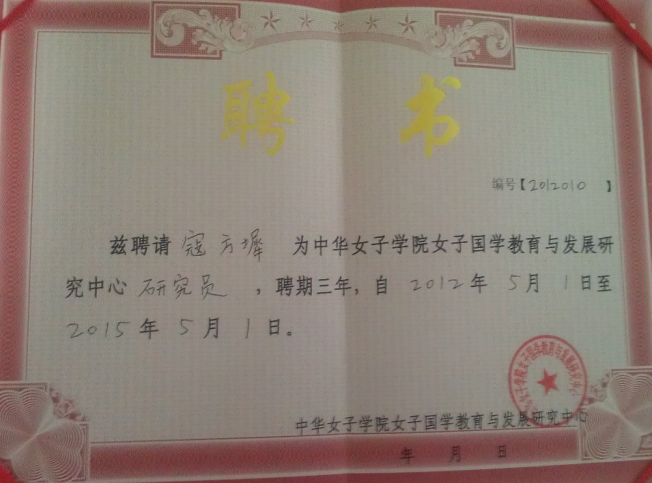 聘 书
编号【2012010 】
兹聘请 寇方墀 为中华女子学院女子国学教育与发展研
究中心 研究员 ，聘期三年，自 2012 年 5 月 1 日至
2015 年 5 月 1 日。
中华女子学院女子国学教育与发展研究中心
年 月 日